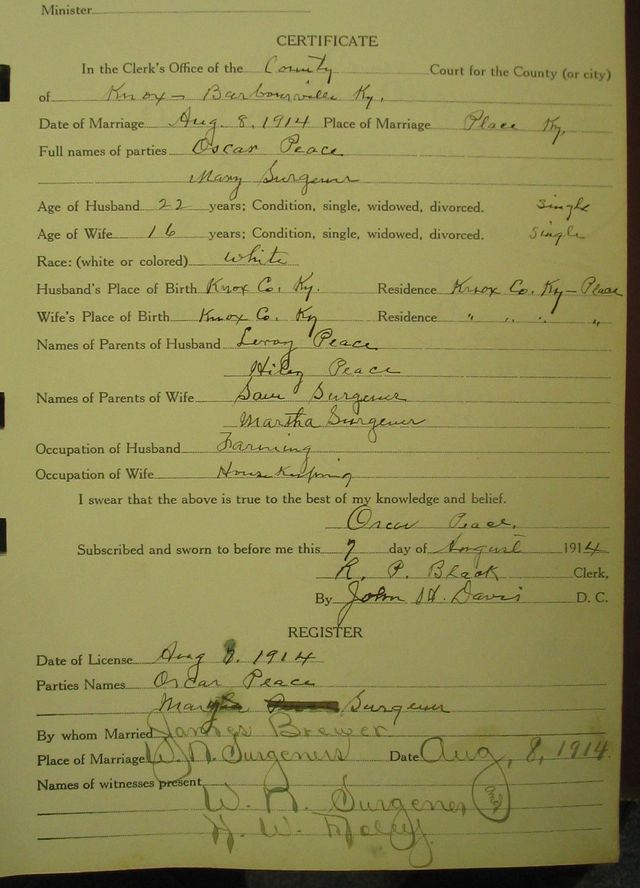 Minister
CERTIFICATE
In the Clerk's Office of the County Court for the County (or city)
of Knox - Barbourville Ky.
Date of Marriage Aug. 8, 1914 Place of Marriage Place Ky.
Full names of parties Oscar Peace
Mary Surgener
Age of Husband 22 years; Condition, single, widowed, divorced. Single
Age of Wife 16 years; Condition, single, widowed, divorced. Single
Race: (white or colored) White
Husband's Place of Birth Knox Co. Ky. Residence Knox Co. Ky - Place
Wife's Place of Birth Knox Co. Ky Residence " " " "
Names of Parents of Husband Leroy Peace
Hiley Peace
Names of Parents of Wife Surgener
Martha Surgener
Occupation of Husband Farming
Occupation of Wife House Keeping
I swear that the above is true to the best of my knowledge and belief.
Oscar Peace.
Subscribed and sworn to before me this 7 day of August 1914
R. P. Black Clerk,
By John H. Davis D. C.
REGISTER
Date of License Aug 1914
Parties Names Oscar Peace
Surgener
By whom Married James Brewer
Place of Marriage W. R. Surgeners Date Aug, 8, 1914
Names of witnesses present
W. R. Surgener